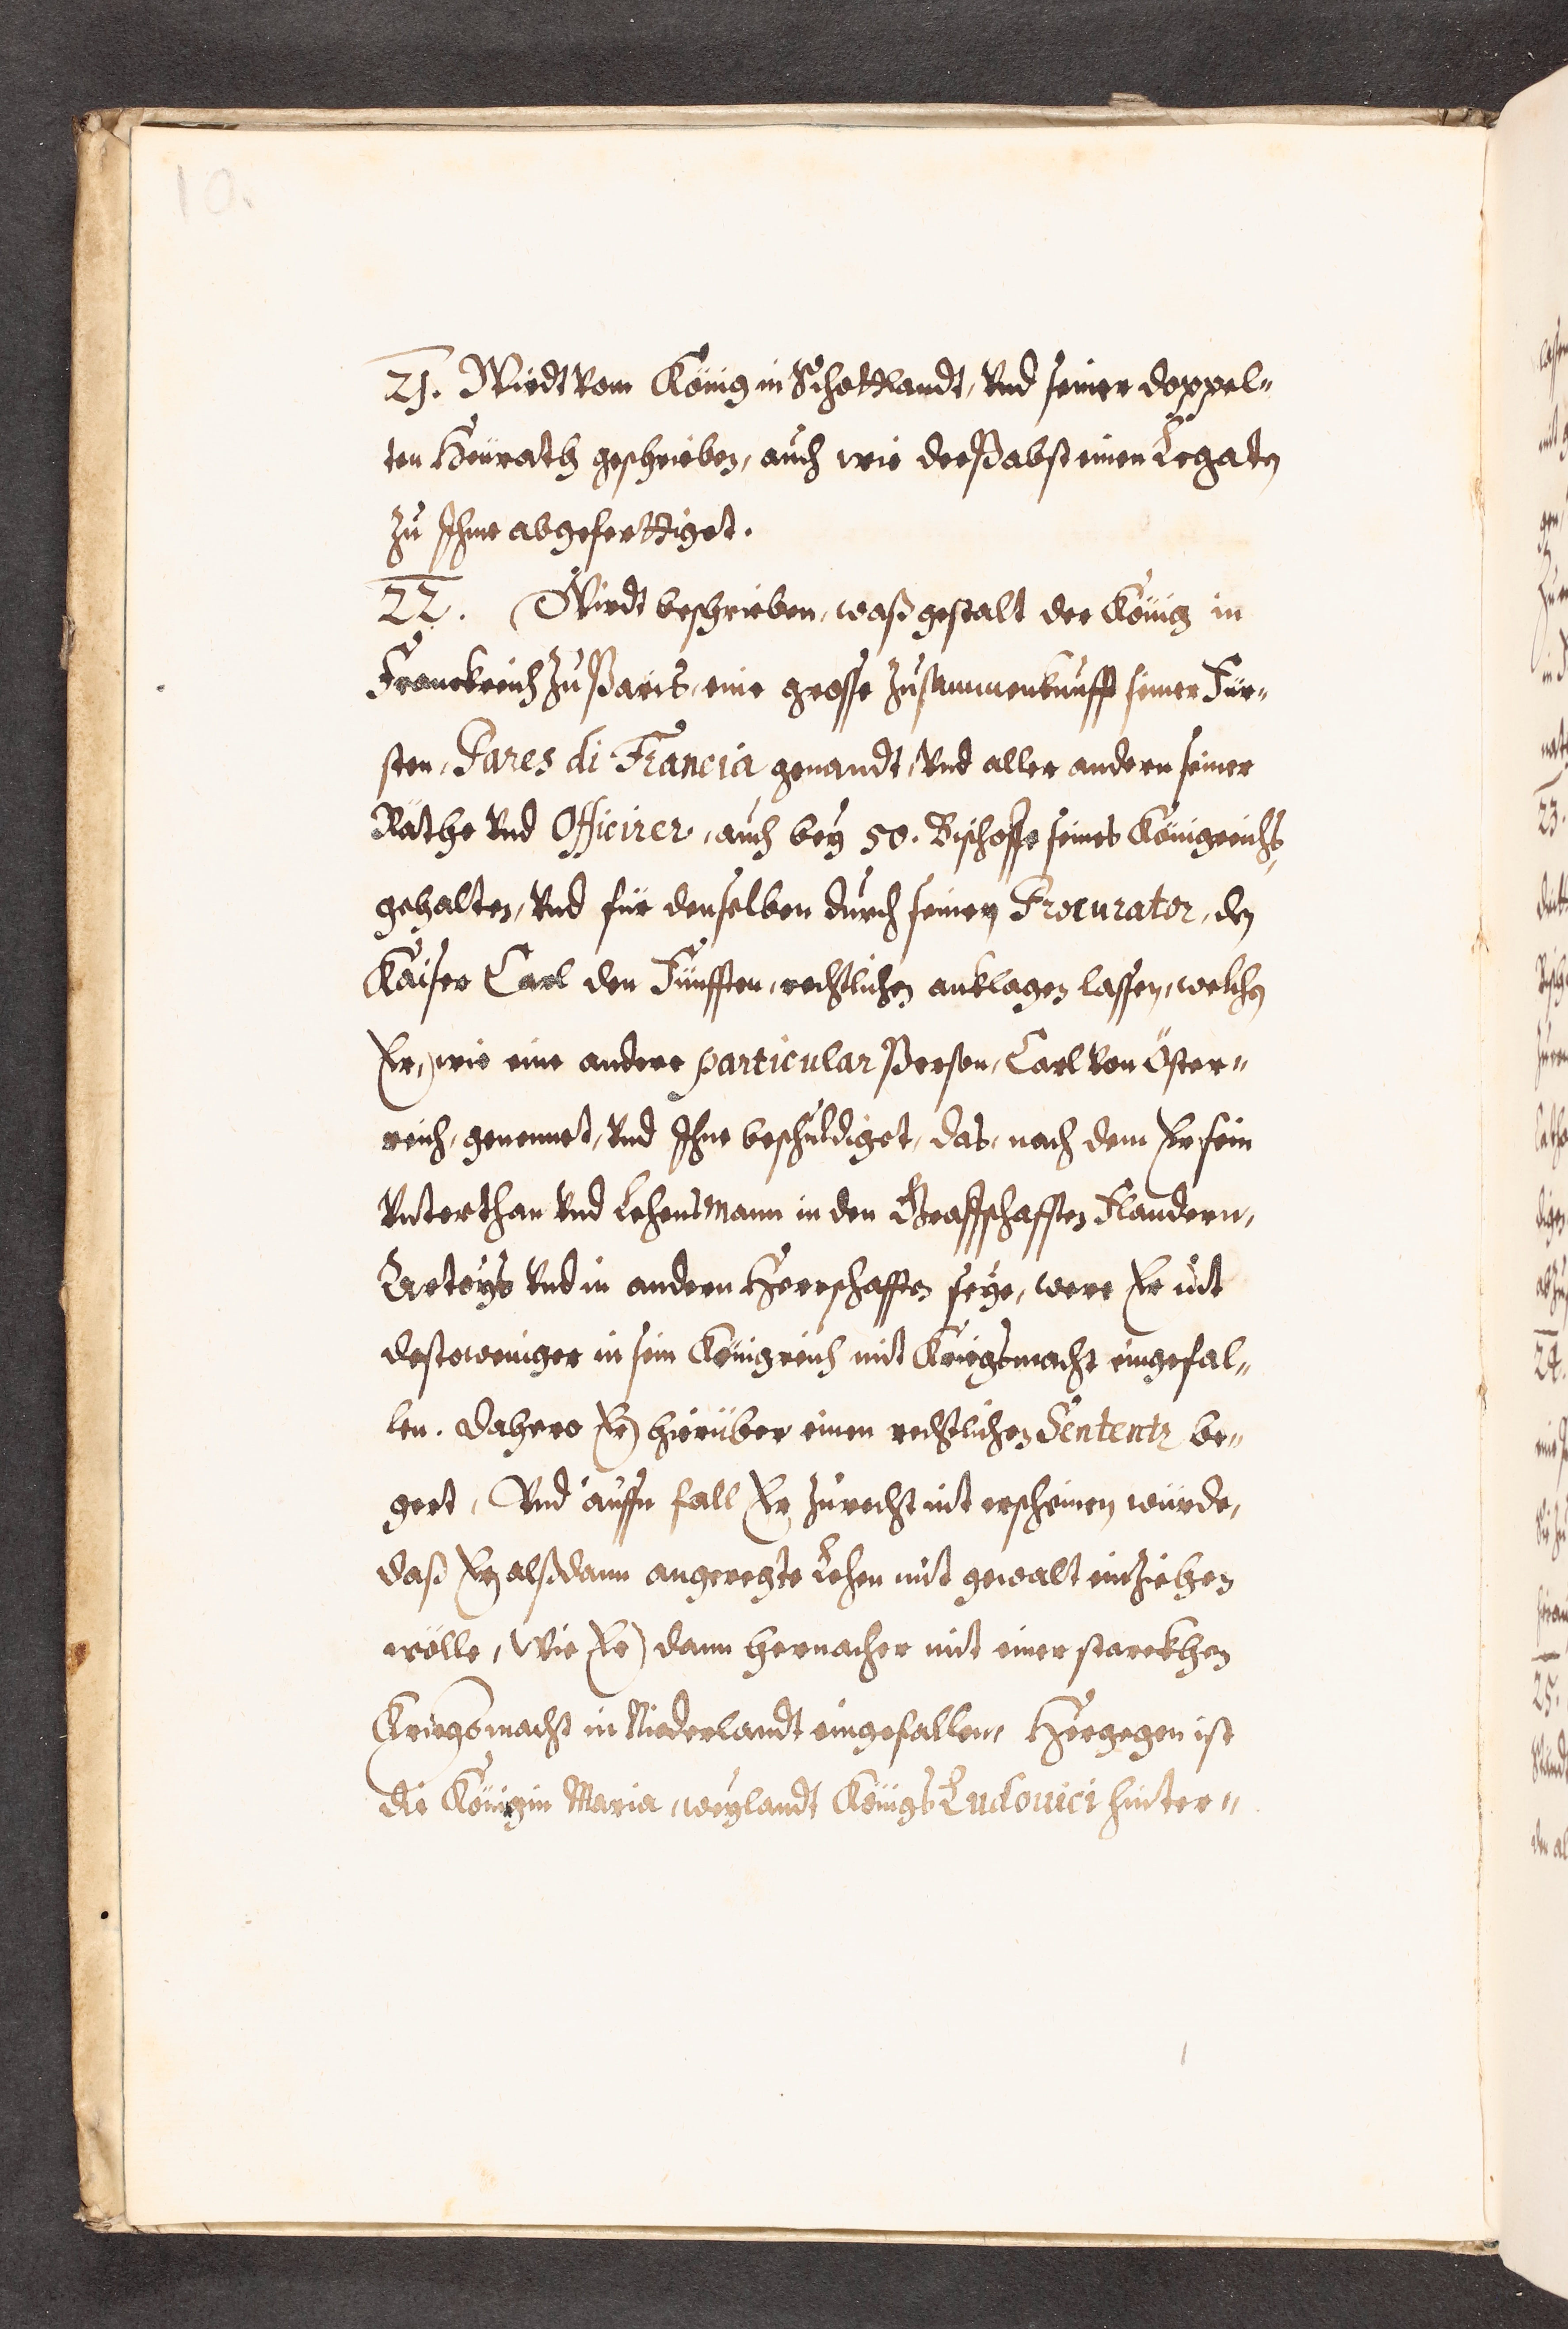 10.
21. Wirdt vom König in Schottlandt, vnd seiner doppel„
ten Heurath geschrieben, auch wie der Pabst einen Legaten
zu Ihme abgeferttiget.
22. Wirdt beschrieben, waß gestalt der König in
Franckreich zu Pariß, eine grosse Zusammenkunfft seiner Für„
sten, Pares di Francia genandt, vnd aller andern seiner
Räthe vnd Officirer, auch bey 50. Bischoffe seines Königreichs,
gehalten, vnd für denselben durch seinen Procurator, den
Kaiser Carl den Fünfften, rechtlichen anklagen lassen, welchen
Er, wie eine andere particular Person, Carl von Öster„
reich, genennet, vnd Ihne beschuldiget, das, nach dem Er sein
Vnterthan vnd Lehensmann in den Graffschafften Flandern,
Artoys vnd in andern Herrschafften seye, were Er nit
destoweniger in sein Königreich mit Kriegsmacht eingefal„
len. Dahero Er hierüber einen rechtlichen Sententz be„
gert, Vnd auffn fall Er zurecht nit erscheinen würde,
daß Er alßdann angeregte Lehen mit gewalt einziehen
wölle, Wie Er dann hernacher mit einer starckhen
Kriegsmacht in Niederlandt eingefallen, Hergegen ist
die Königin Maria, weylandt Königs Ludouici hinter„
23.
24.
25.